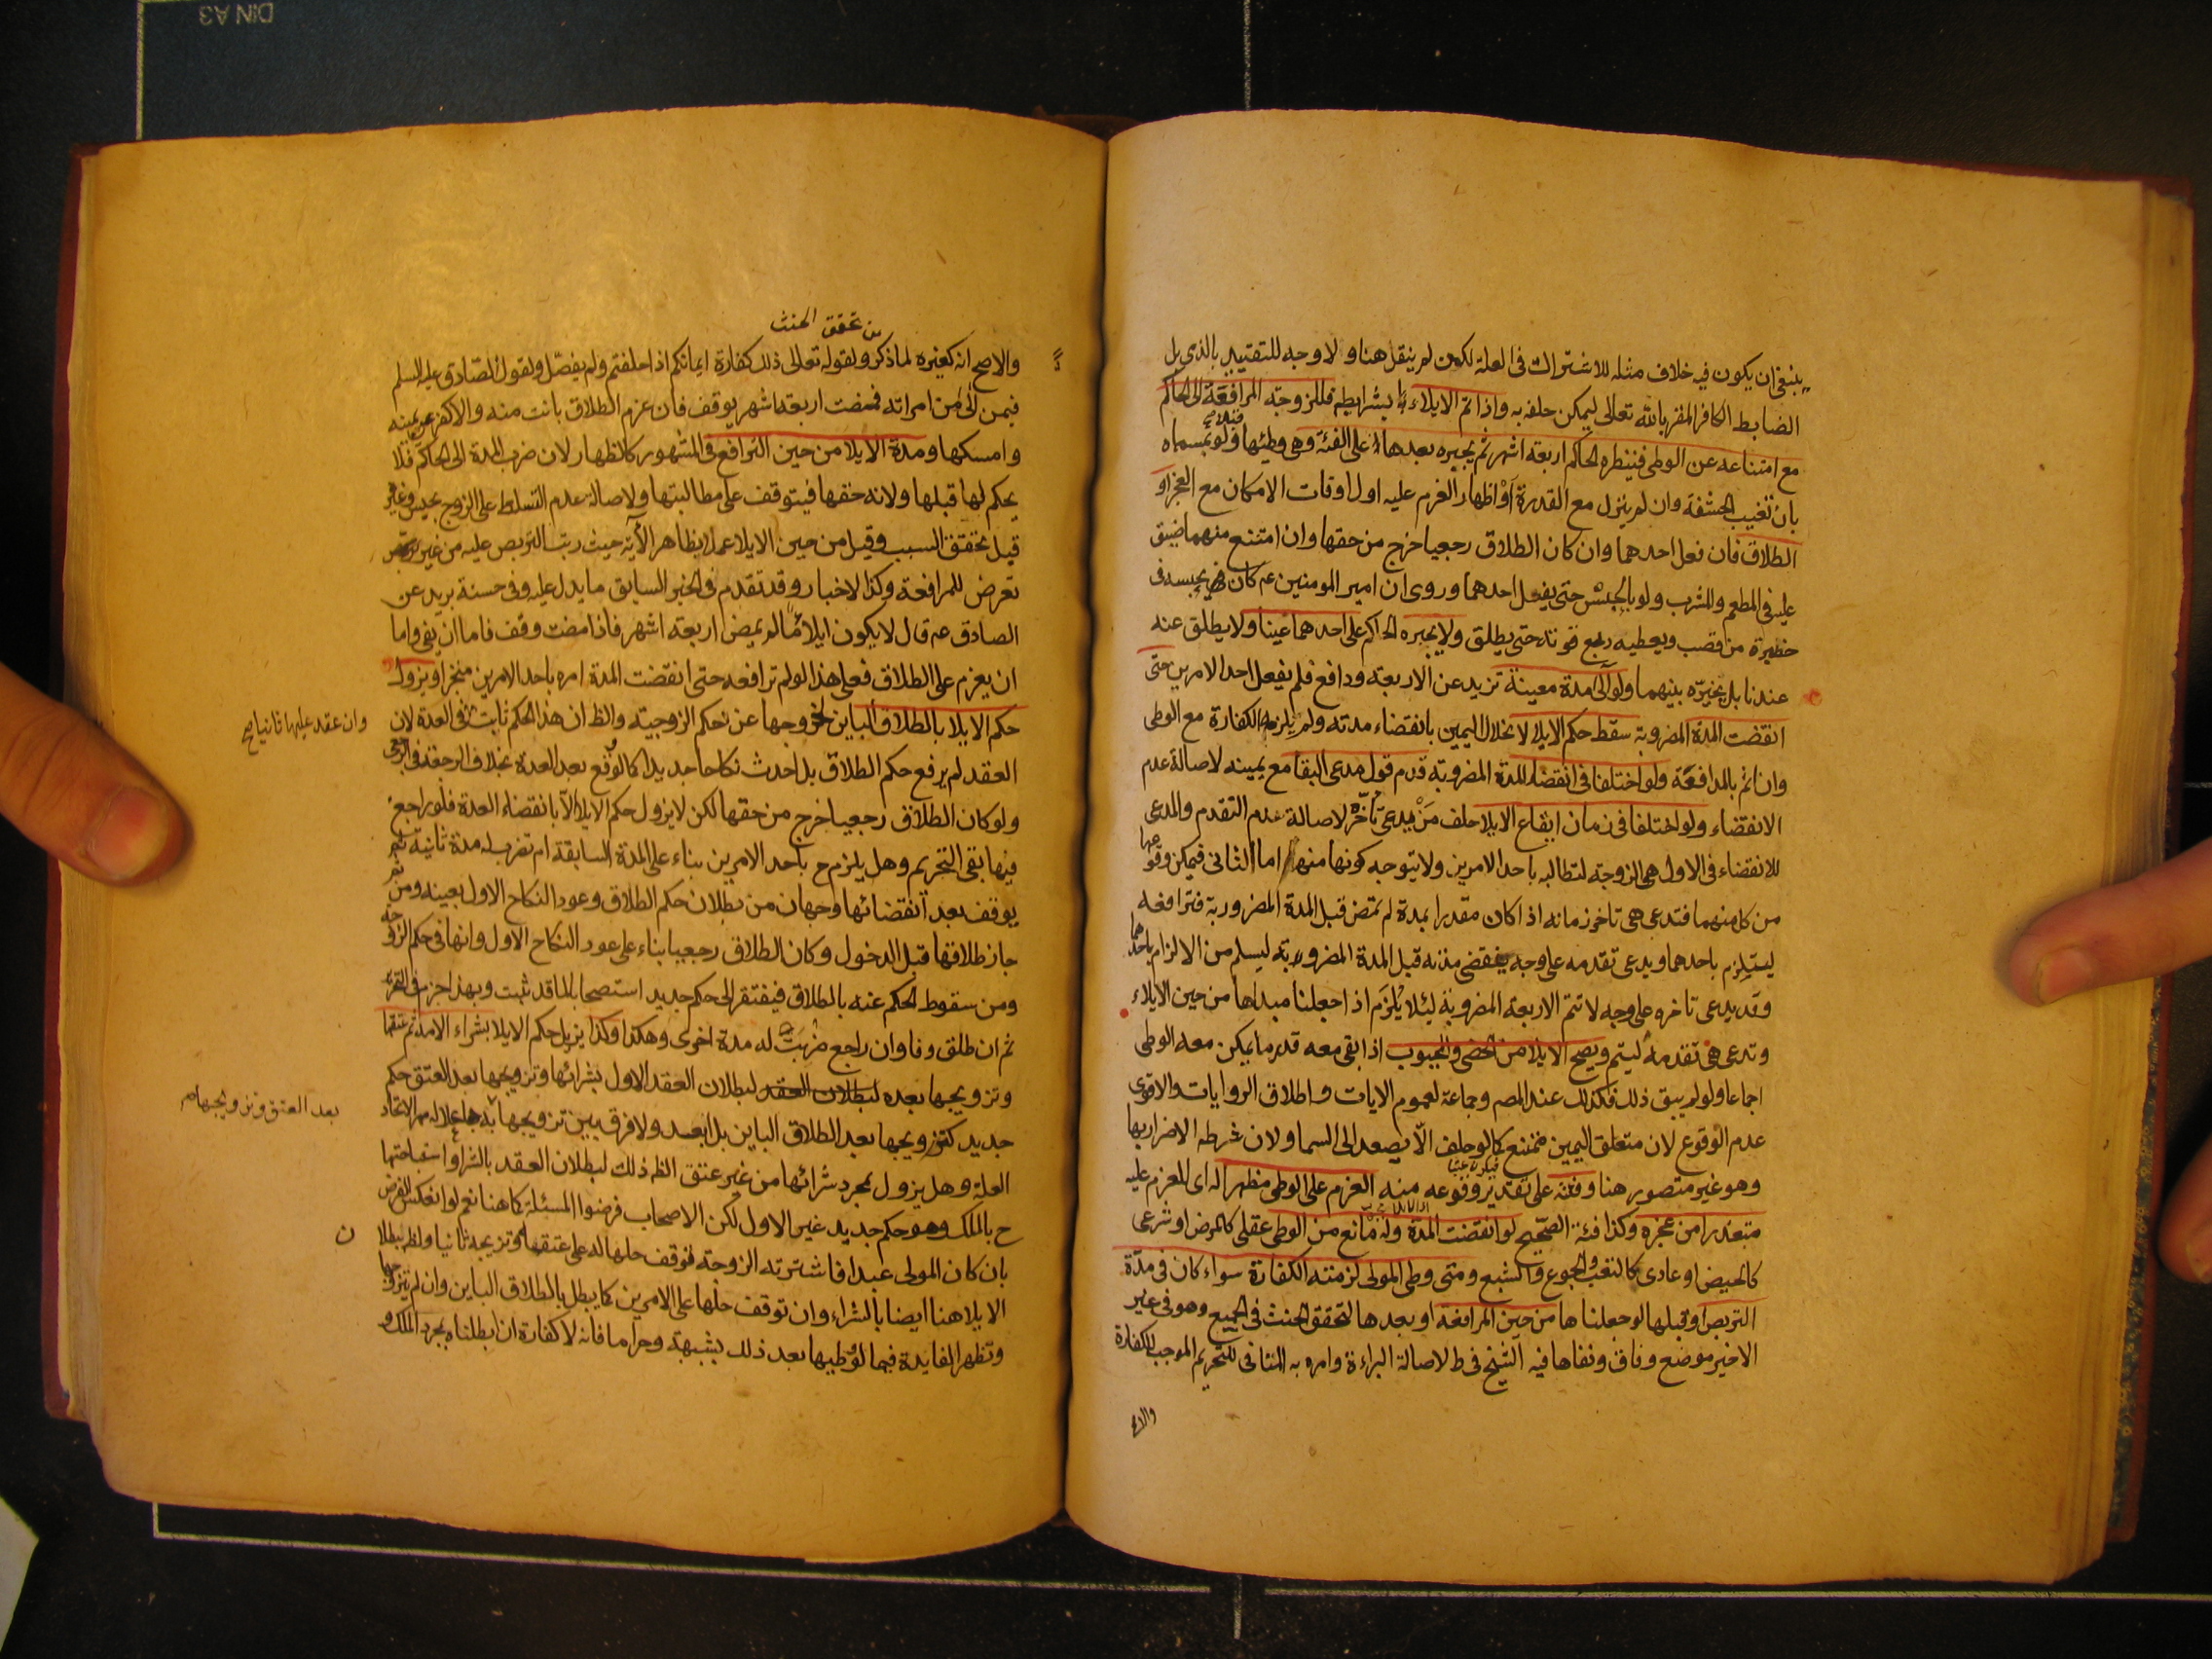 ينبغى ان يكون فيه خلاف مثله للاشتراك فى العلة لكن لم ينقل هنا ولا وجه للتقييد بالذى بل
الضابط الكافر المقر بالله تعالى ليمكن حلفه به واذا تم الايلاء بشرايطه فللزوجة المرافعة الى الحاكم
مع امتناعه عن الوطى فينظره الحاكم اربعة اشهر ثم يجبره بعدها على الفئة وهى وطيها قبلا ولو بمسماه
بان تغيب الحشفة وان لم ينزل مع القدرة او اظهار العزم عليه اول اوقات الامكان مع العجز او
الطلاق فان فعل احدهما وان كان الطلاق رجعيا خرج من حقها وان امتنع منهما ضيق
عليه فى المطعم والمشرب ولو بالحبس حتى يفعل احدهما وروى ان امير المومنين عم كان يحبسه فى
حظيرة من قصب ويعطيه ربع قوته حتى يطلق ولا يجبره الحاكم على احدهما عينا ولا يطلق عنه
عندنا بل يخيره بينهما ولو آلى مدة معينة تزيد عن الاربعة ودافع فلم يفعل احد الامرين حتى
انقضت المدة المضروبة سقط حكم الايلا لانحلال اليمين بانقضاء مدته ولم يلزمه الكفارة مع الوطى
وان اثم بالمدافعة ولو اختلفا فى انقضاء المدة المضروبة قدم قول مدعى البقا مع يمينه لاصالة عدم
الانقضاء ولو اختلفا فى زمان ايقاع الايلا حلف من يدعى تأخره لاصالة عدم التقدم والمدعى
للانقضاء فى الاول هى الزوجة لتطالبه باحد الامرين ولا يتوجه كونها منه اما الثانى فيمكن وقوعها
من كل منهما فتدعى هى تاخر زمانه اذا كان مقدرا بمدة لم تمض قبل المدة المضروبة فترافعه
ليستلزم باحدهما ويدعى تقدمه على وجه ينقضى مدته قبل المدة المضروبة ليسلم من الالزام باحدهما
وقد يدعى تاخره على وجه لا تتم الاربعة المضروبة ليئلا يلزم اذا جعلنا مبداها من حين الايلاء
وتدعى هى تقدمه ليتم ويصح الايلا من الخصى والمجبوب اذا بقى معه قدر ما يمكن معه الوطى
اجماعا ولو لم يبق ذلك فكذلك عند المصـ وجماعة لعموم الايات واطلاق الروايات والاقوى
عدم الوقوع لان متعلق اليمين ممتنع كما لو حلف الا يصعد الى السما ولان شرطه الاضرار بها
وهو غير متصور هنا وفئته على تقدير وقوعه منه العزم على الوطى مظهرا له اى للعزم عليه
متعذرا من عجزه وكذا فئة الصحيح لو انقضت المدة وله مانع من الوطى عقلى كالمرض او شرعى
كالحيض او عادى كالتعب والجوع والشبع ومتى وطى المولى لزمته الكفارة سواء كان فى مدة
التربص او قبلها لو جعلناها من حين المرافعة او بعدها لتحقق الحنث فى الجميع وهو فى غير
الاخير موضع وفاق ونفاها فيه الشيخ فى ط لاصالة البراءة وامره به المنافى للتحريم الموجب للكفارة
والاصح
من تحقق الحنث
والاصح انه كغيره لما ذكر ولقوله تعالى ذلك كفارة ايمانكم اذا حلفتم ولم يفصل ولقول الصادق عليه السلم
فيمن آلى من امراته فمضت اربعة اشهر يوقف فان عزم الطلاق بانت منه والا كفر عن يمينه
وامسكها ومدة الايلا من حين الترافع فى المشهور كالظهار لان ضرب المدة الى الحاكم فلا
يحكم لها قبلها ولانه حقها فيتوقف على مطالبتها ولاصالة عدم التسلط على الزوج بحبس وغيره
قبل تحقق السبب وقيل من حين الايلا عملا بظاهر الآية حيث رتب التربص عليه من غير
تعرض للمرافعة وكذا الاخبار وقد تقدم فى الخبر السابق ما يدل عليه وفى حسنة بريد عن
الصادق عم قال لا يكون ايلاء ما لم يمض اربعة اشهر فاذا مضت وقف فاما ان يفئ واما
ان يعزم على الطلاق فعلى هذا لو لم ترافعه حتى انقضت المدة امره باحد الامرين منجزا ويزول
حكم الايلا بالطلاق الباين لخروجها عن حكم الزوجية والظ ان هذا الحكم ثابت فى العدة لان
وان عقد عليها ثانيا صح
العقد لم يرفع حكم الطلاق بل احدث نكاحا جديدا كما لو وقع بعد العدة بخلاف الرجعة فى الرجعى
ولو كان الطلاق رجعيا خرج من حقها لكن لا يزول حكم الايلا الا بانقضاء العدة فلو راجع
فيها بقى التحريم وهل يلزم ح باحد الامرين بناء على المدة السابقة ام تضرب له مدة ثانية ثم
يوقف بعد انقضائها وجهان من بطلان حكم الطلاق وعود النكاح الاول بعينه ومن ثم
جاز طلاقها قبل الدخول وكان الطلاق رجعيا بناء على عود النكاح الاول وانها فى حكم الزوجة
ومن سقوط الحكم عنه بالطلاق فيفتقر الى حكم جديد استصحابا لما قد ثبت وبهذا جزم فى التحرير
ثم ان طلق وفا وان راجع ضربت له مدة اخرى وهكذا وكذا يزيل حكم الايلا بشراء الامة ثم عتقها
وتزويجها بعده لبطلان العقد لبطلان العقد الاول بشرائها وتزويجها بعد العتق حكم
جديد كتزويجها بعد الطلاق الباين بل ابعد ولا فرق بين تزويجها
بعد العتق وتزويجها به
العلة وهل يزول بمجرد شرائها من غير عتق الظ ذلك لبطلان العقد بالشرا واستباحتها
ح بالملك وهو حكم جديد غير الاول لكن الاصحاب فرضوا المسئلة كما هنا نعم لو انعكس الفرض
بان كان المولى عبدا فاشترته الزوجة توقف حلها له على عتقه وتزويجه ثانيا والظ بطلان
الايلا هنا ايضا بالشراء وان توقف حلها على الامرين كما يبطل بالطلاق الباين وان لم يتزوجها
وتظهر الفايدة فيما لو وطيها بعد ذلك بشبهة وحراما فانه لا كفارة ان ابطلناه بمجرد الملك و